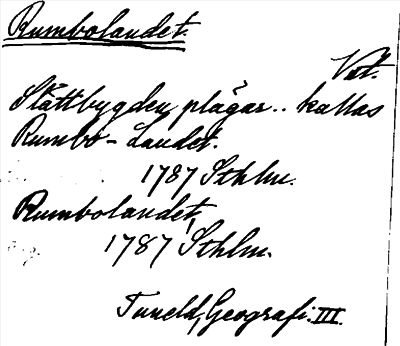 Rumbolandet.
Vst.
Slättbygden plägar.. kallas
Rumbo-Landet.
1787 Sthlm.
Rumbolandet,
1787 Sthlm.
Tuneld, Geografi. III.